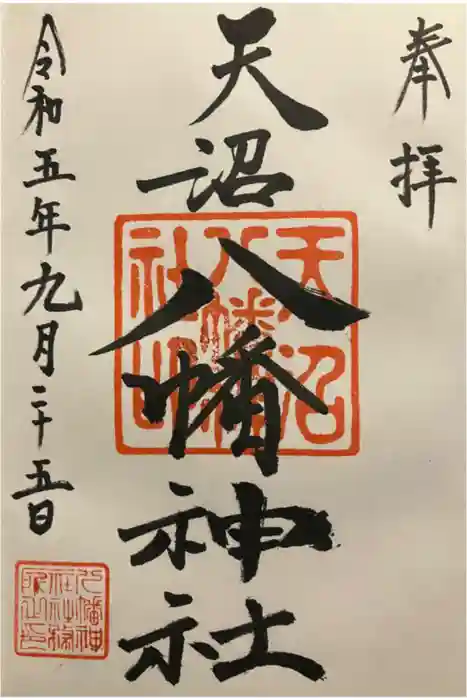 奉拝
天沼八幡神社
令和五年九月二十五日
天沼
八幡
社印